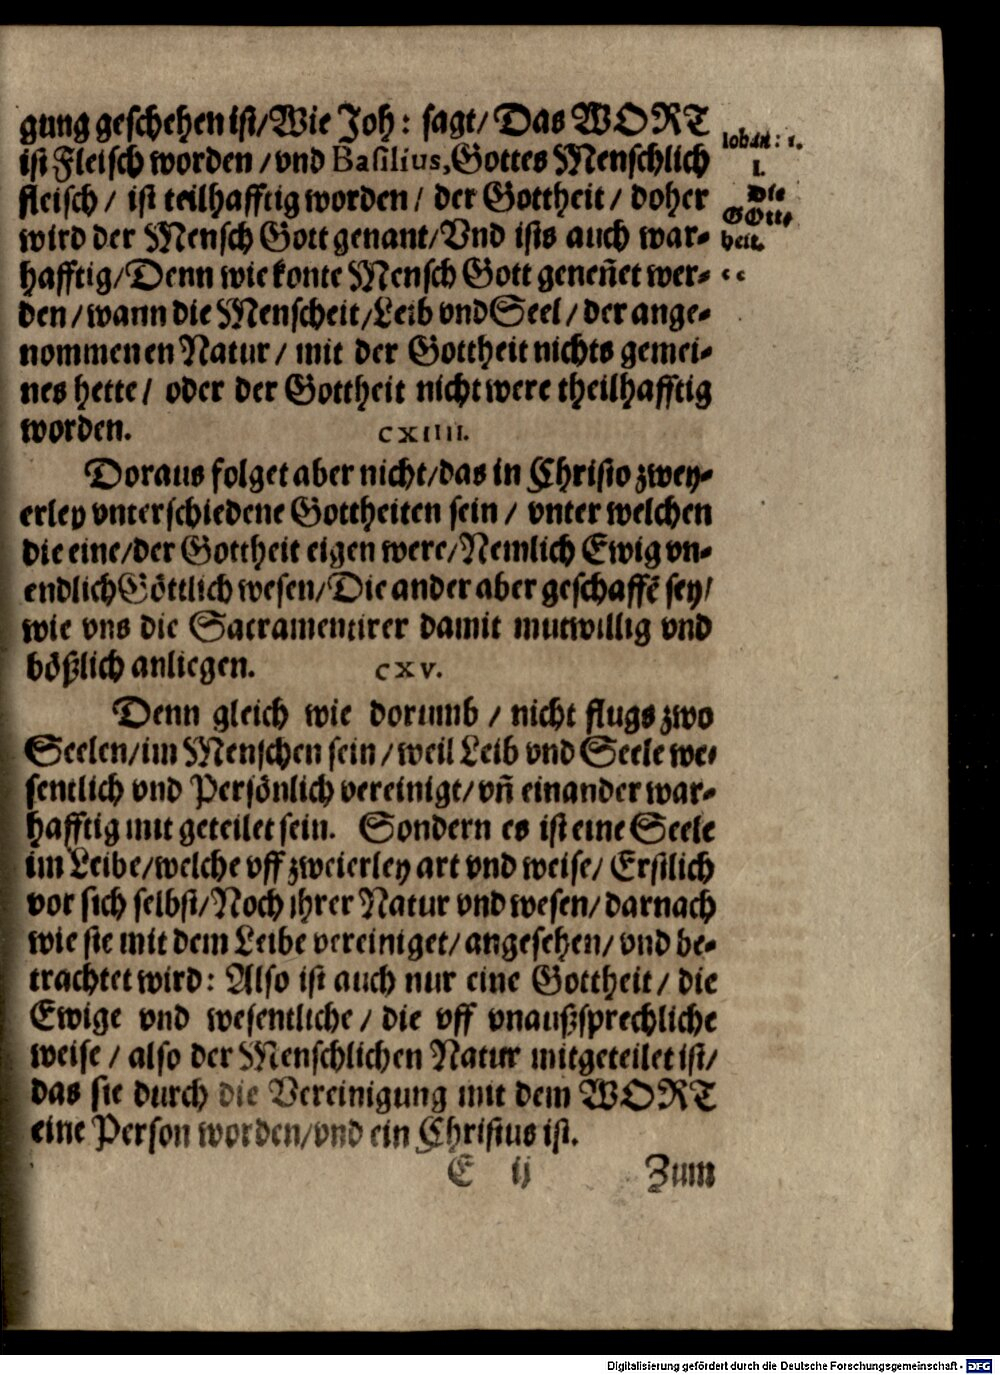 gung geschehen ist/Wie Joh: sagt/ Das WORT
ist Fleisch worden /vnd Basilius, Gottes Menschlich
fleisch / ist teilhafftig worden / der Gottheit / doher
wird der Mensch Gott genant/Vnd ists auch war-
hafftig/Denn wie konte Mensch Gott geneñet wer-
den /wann die Menscheit/Leib vnd Seel / der ange-
nommenen Natur / mit der Gottheit nichts gemei-
nes hette / oder der Gottheit nicht were theilhafftig
worden.
Iohan: 1.
1.
Die
GOtt-
heit.
CXIIII.
Doraus folget aber nicht/das in Christo zwey-
erley vnterschiedene Gottheiten sein / vnter welchen
die eine/der Gottheit eigen were/Nemlich Ewig vn-
endlich Göttlich wesen/Die ander aber geschaffē sey/
wie vns die Sacramentirer damit mutwillig vnd
bößlich anliegen.
CXV.
Denn gleich wie dorumb / nicht flugs zwo
Seelen/im Menschen sein /weil Leib vnd Seele we-
sentlich vnd Persönlich vereinigt/vñ einander war-
hafftig mit geteilet sein. Sondern es ist eine Seele
im Leibe/welche vff zweierley art vnd weise/ Erstlich
vor sich selbst/Noch ihrer Natur vnd wesen/darnach
wie sie mit dem Leibe vereiniget/angesehen/vnd be-
trachtet wird: Also ist auch nur eine Gottheit / die
Ewige vnd wesentliche / die vff vnaußsprechliche
weise / also der Menschlichen Natur mitgeteilet ist/
das sie durch die Vereinigung mit dem WORT
eine Person worden/vnd ein Christus ist.
E ij Zum
Digitalisierung gefördert durch die Deutsche Forschungsgemeinschaft - DFG